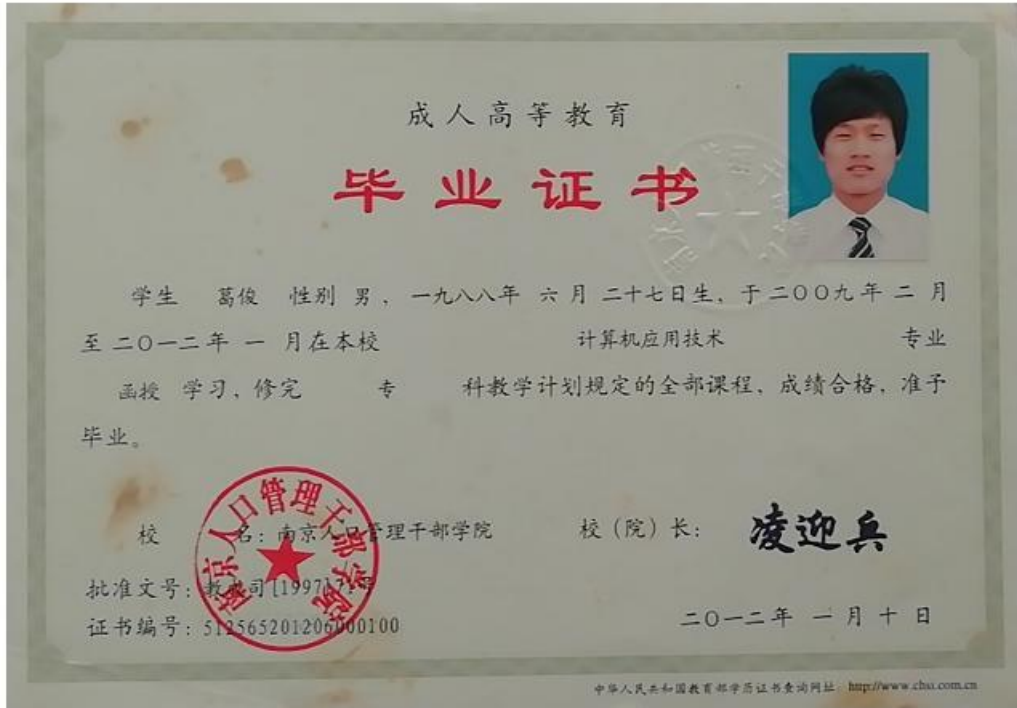 成人高等教育
毕业证书
学生 葛俊 性别 男，一九八八年 六 月 二十七日生，于二〇〇九年 二 月
至二〇一二年 一 月在本校 计算机应用技术 专业
函授 学习，修完 专 科教学计划规定的全部课程，成绩合格，准予
毕业。
南京人口管理干部学院
校 名：南京人口管理干部学院 校（院）长： 凌迎兵
批准文号：教 司[1997]
证书编号：512565201206000100
二〇一二年 一 月 十 日
中华人民共和国教育部学历证书查询网址 http://www.chsi.com.cn